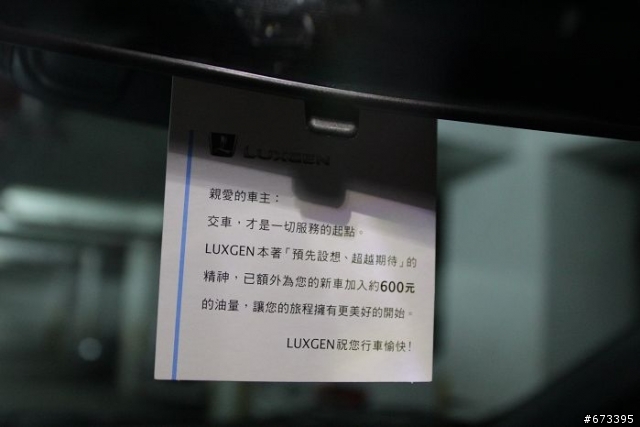 LUXGEN
親愛的車主：
交車，才是一切服務的起點。
LUXGEN本著「預先設想、超越期待」的
精神，已額外為您的新車加入約600元
的油量，讓您的旅程擁有更美好的開始。
LUXGEN祝您行車愉快！
#673395